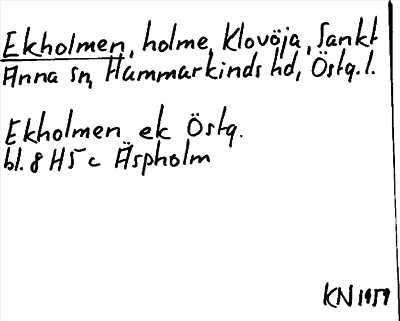 Ekholmen, holme, Klovöja, Sankt
Anna sn, Hammarkinds hd, Östg. l.
Ekholmen ek Östg.
bl. 8 H5 c Äspholm
KN 1959